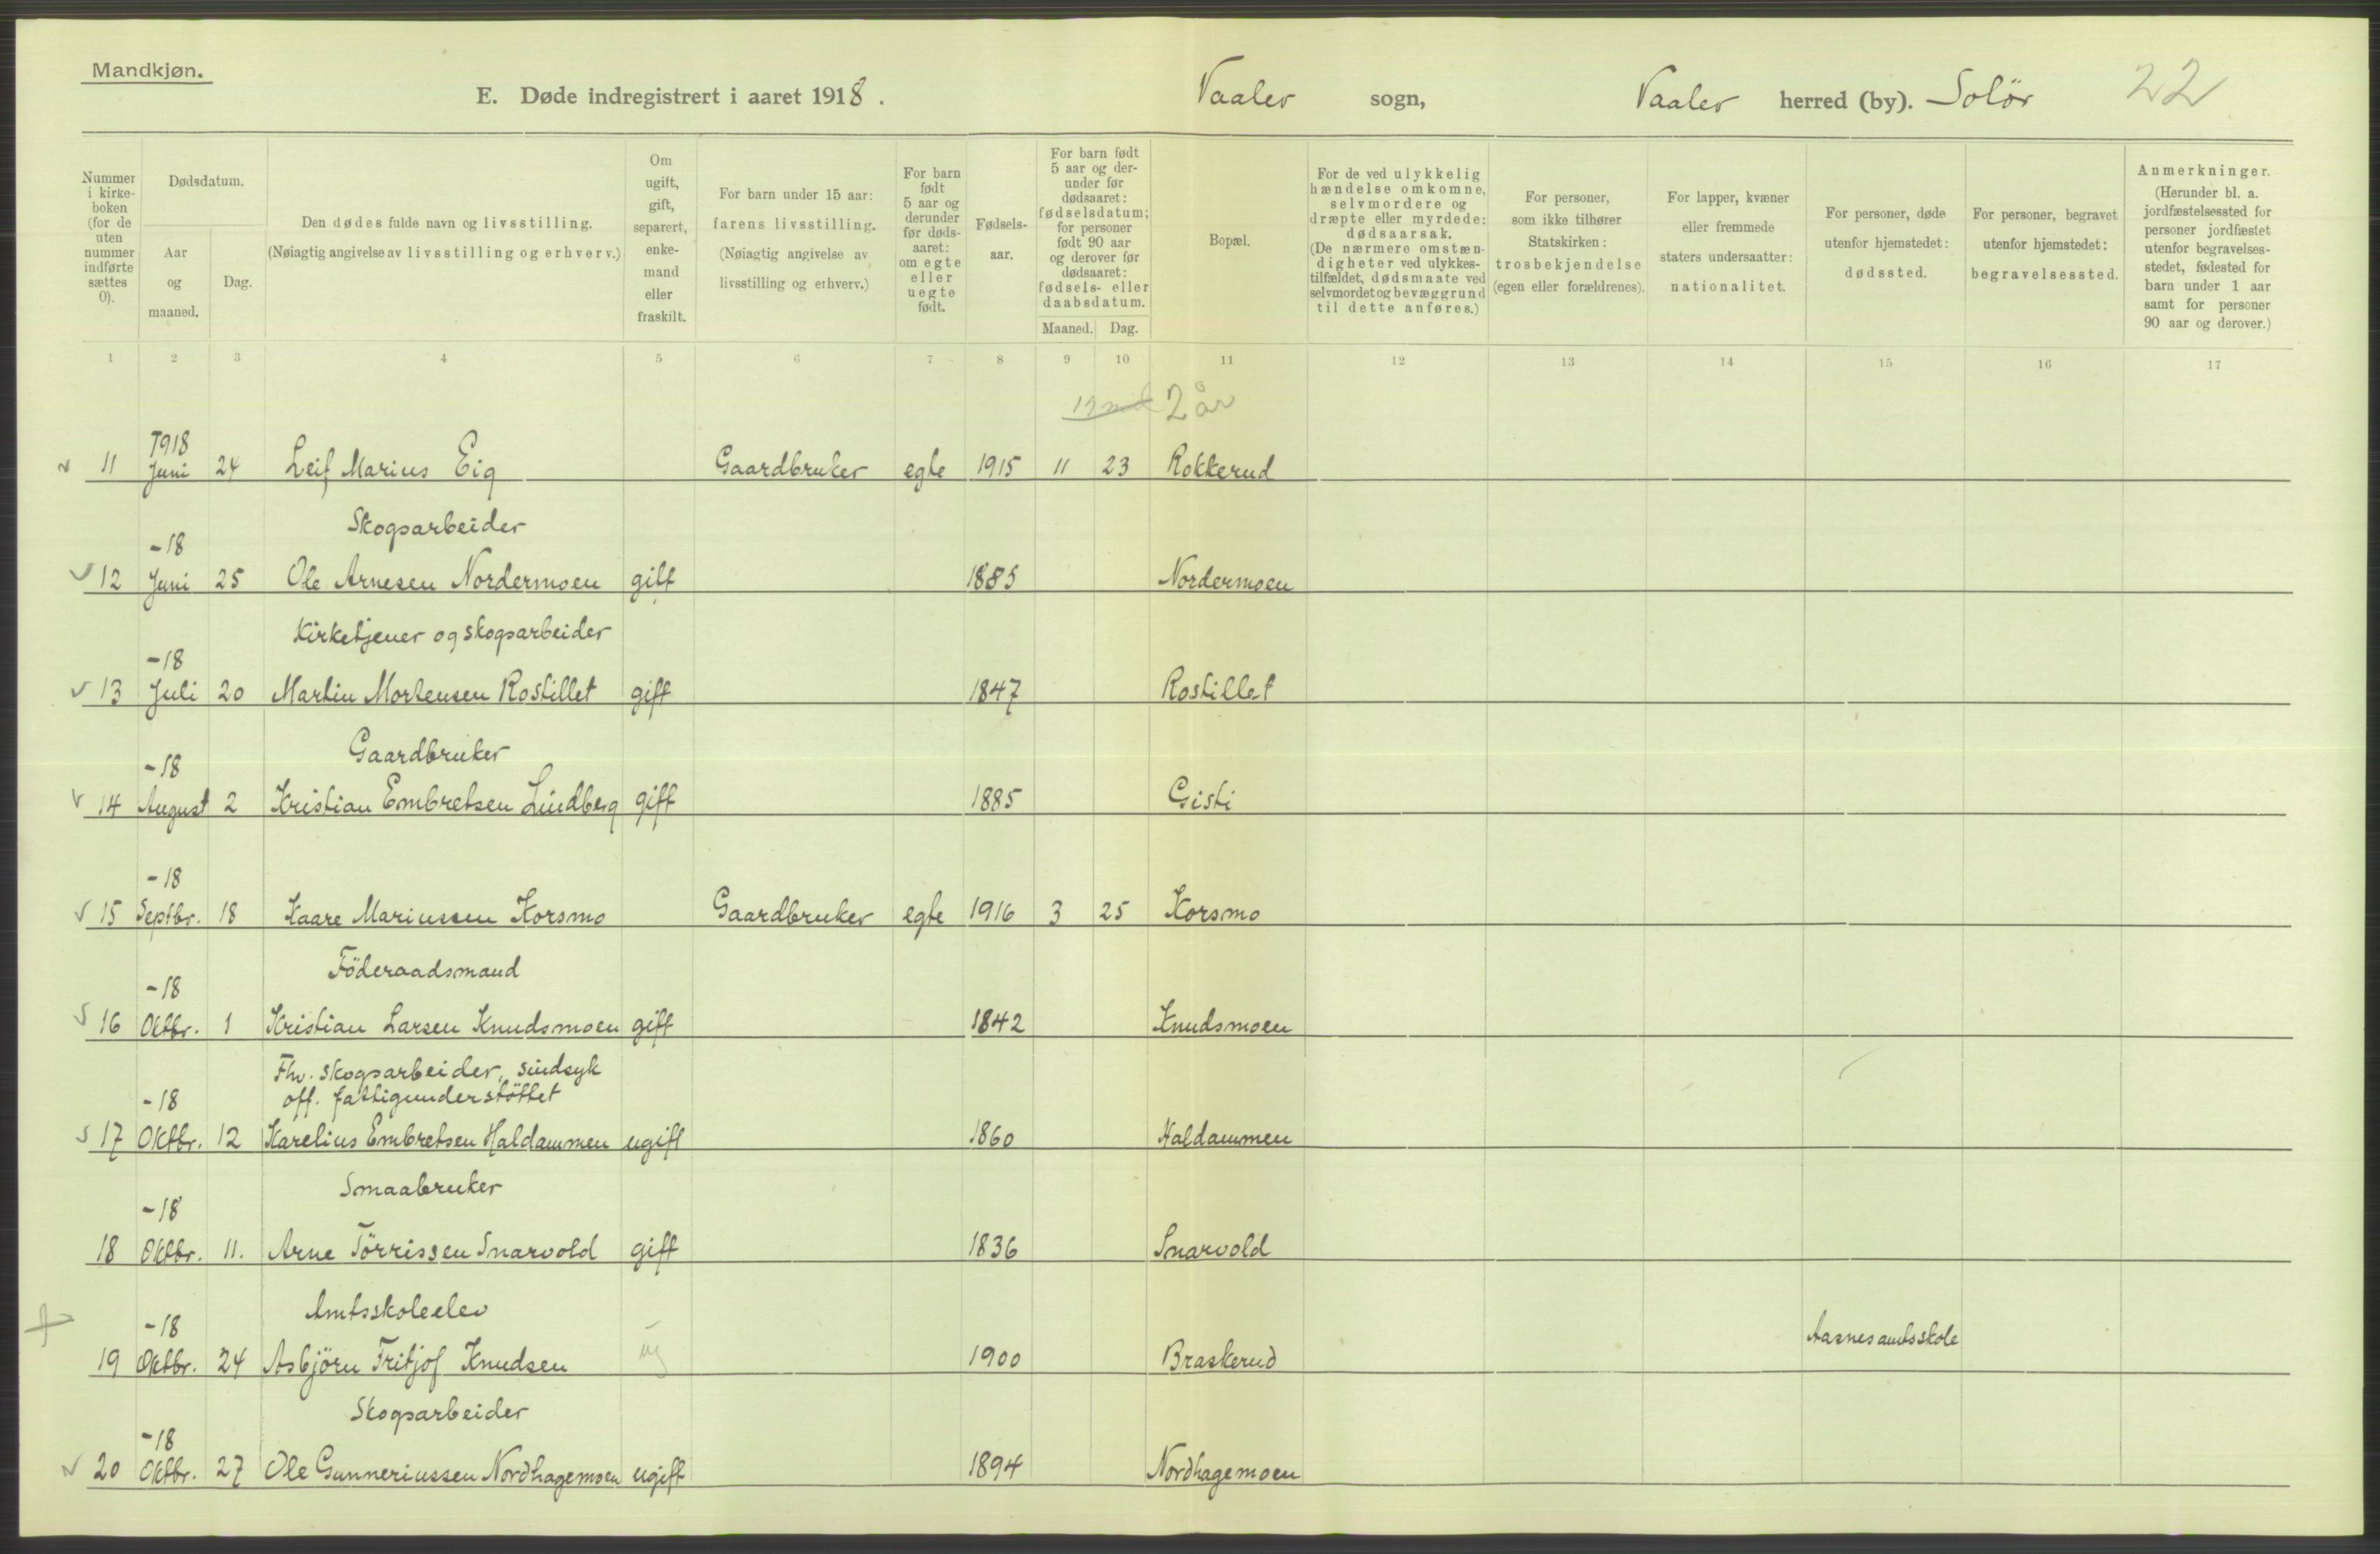 Mandkjøn.
E. Døde indregistrert i aaret 1918. Vaaler sogn, Vaaler herred (by). Solör 22
Nummer i kirke- boken (for de uten nummer indførte sættes 0).
Dødsdatum.
Aar og maaned.
Dag.
Den dødes fulde navn og livsstilling.
(Nøiagtig angivelse av livsstilling og erhverv.)
Om ugift, gift, separert, enke- mand eller fraskilt.
For barn under 15 aar: farens livsstilling.
(Nøiagtig angivelse av livsstilling og erhverv.)
For barn født 5 aar og derunder før døds- aaret: om egte eller uegte født.
Fødsels- aar.
For barn født 5 aar og der- under før dødsaaret: fødselsdatum; for personer født 90 aar og derover før dødsaaret: fødsels- eller daabsdatum.
Maaned. Dag.
Bopæl.
For de ved ulykkelig hændelse omkomne, selvmordere og dræpte eller myrdede: dødsaarsak.
(De nærmere omstæn- digheter ved ulykkes- tilfældet, dødsmaate ved selvmordet og bevæggrund til dette anføres.)
For personer, som ikke tilhører Statskirken: trosbekjendelse (egen eller forældrenes).
For lapper, kvæner eller fremmede staters undersaatter: nationalitet.
For personer, døde utenfor hjemstedet: dødssted.
For personer, begravet utenfor hjemstedet: begravelsessted.
Anmerkninger.
(Herunder bl. a. jordfæstelsessted for personer jordfæstet utenfor begravelses- stedet, fødested for barn under 1 aar samt for personer 90 aar og derover.)
1 2 3 4 5 6 7 8 9 10 11 12 13 14 15 16 17
2 år
1918
11 Juni 24 Leif Marius Eig Gaardbruker egte 1915 11 23 Rokkerud
Skogsarbeider
-18
12 Juni 25 Ole Arnesen Nordermoen gift 1885 Nordermoen
Kirketjener og skogsarbeider
-18
13 Juli 20 Martin Mortensen Rostillet gift 1847 Rostillet
Gaardbruker
-18
14 August 2 Kristian Embretsen Lindberg gift 1885 Gisti
-18
15 Septbr. 18 Kaare Mariussen Korsmo Gaardbruker egte 1916 3 25 Korsmo
Föderaadsmand
-18
16 Oktbr. 1 Kristian Larsen Knudsmoen gift 1842 Knudsmoen
Fhv. skogsarbeider, sindsyk
off. fattigunderstöttet
-18
17 Oktbr. 12 Karelius Embretsen Haldammen ugift 1860 Haldammen
Smaabruker
-18
18 Oktbr. 11. Arne Törrissen Snarvold gift 1836 Snarvold
Amtsskoleelev
-18
19 Oktbr. 24 Asbjörn Fritjof Knudsen ug 1900 Braskerud Aasnes amtsskole
Skogsarbeider
-18
20 Oktbr. 27 Ole Gunneriussen Nordhagemoen ugift 1894 Nordhagemoen